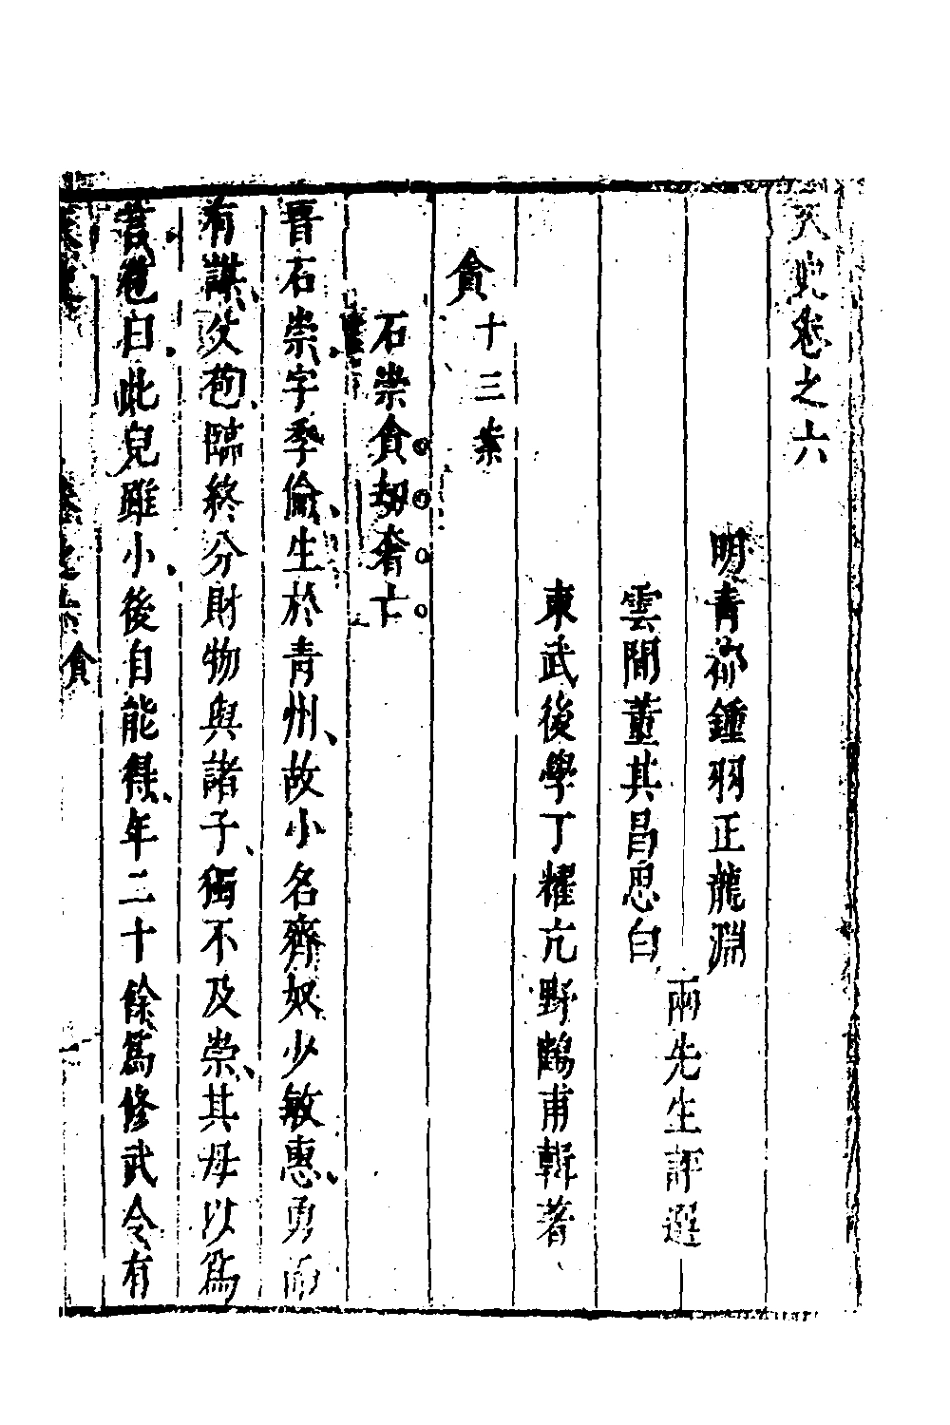 天史卷之六
明青祁鍾羽正龍淵
雲間董其昌思白
兩先生評選
東武後學丁耀亢野鶴甫輯著
貪十三案
石崇貪劫奢亡
晉石崇字季倫生於青州故小名齊奴少敏惠勇而
有謀父苞臨終分財物與諸子獨不及崇其母以爲
言苞曰此兒雖小後自能得年二十餘爲修武令有
卷之六 貪
一